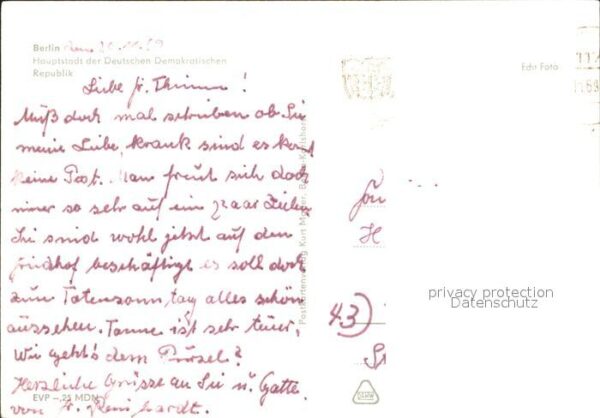 Berlin den 20.11.69
Hauptstadt der Deutschen Demokratischen
Republik
Edr Foto
Liebe fr. Thimm!
Muß doch mal schreiben ob Sie
meine Liebe, krank sind es kommt
keine Post. Man freut sich doch
immer so sehr auf ein paar Zeilen
Sie sind wohl jetzt auf den
Friedhof beschäftigt es soll doch
zum Totensonntag alles schön
aussehen. Tanne ist sehr teuer,
Wie geht's dem
Herzliche Grüsse an Sie u. Gatte
von fr. Reinhardt.
EVP -,25 MDN
Postkartenverlag Kurt Berlin-Karlshorst
43)
privacy protection
Datenschutz